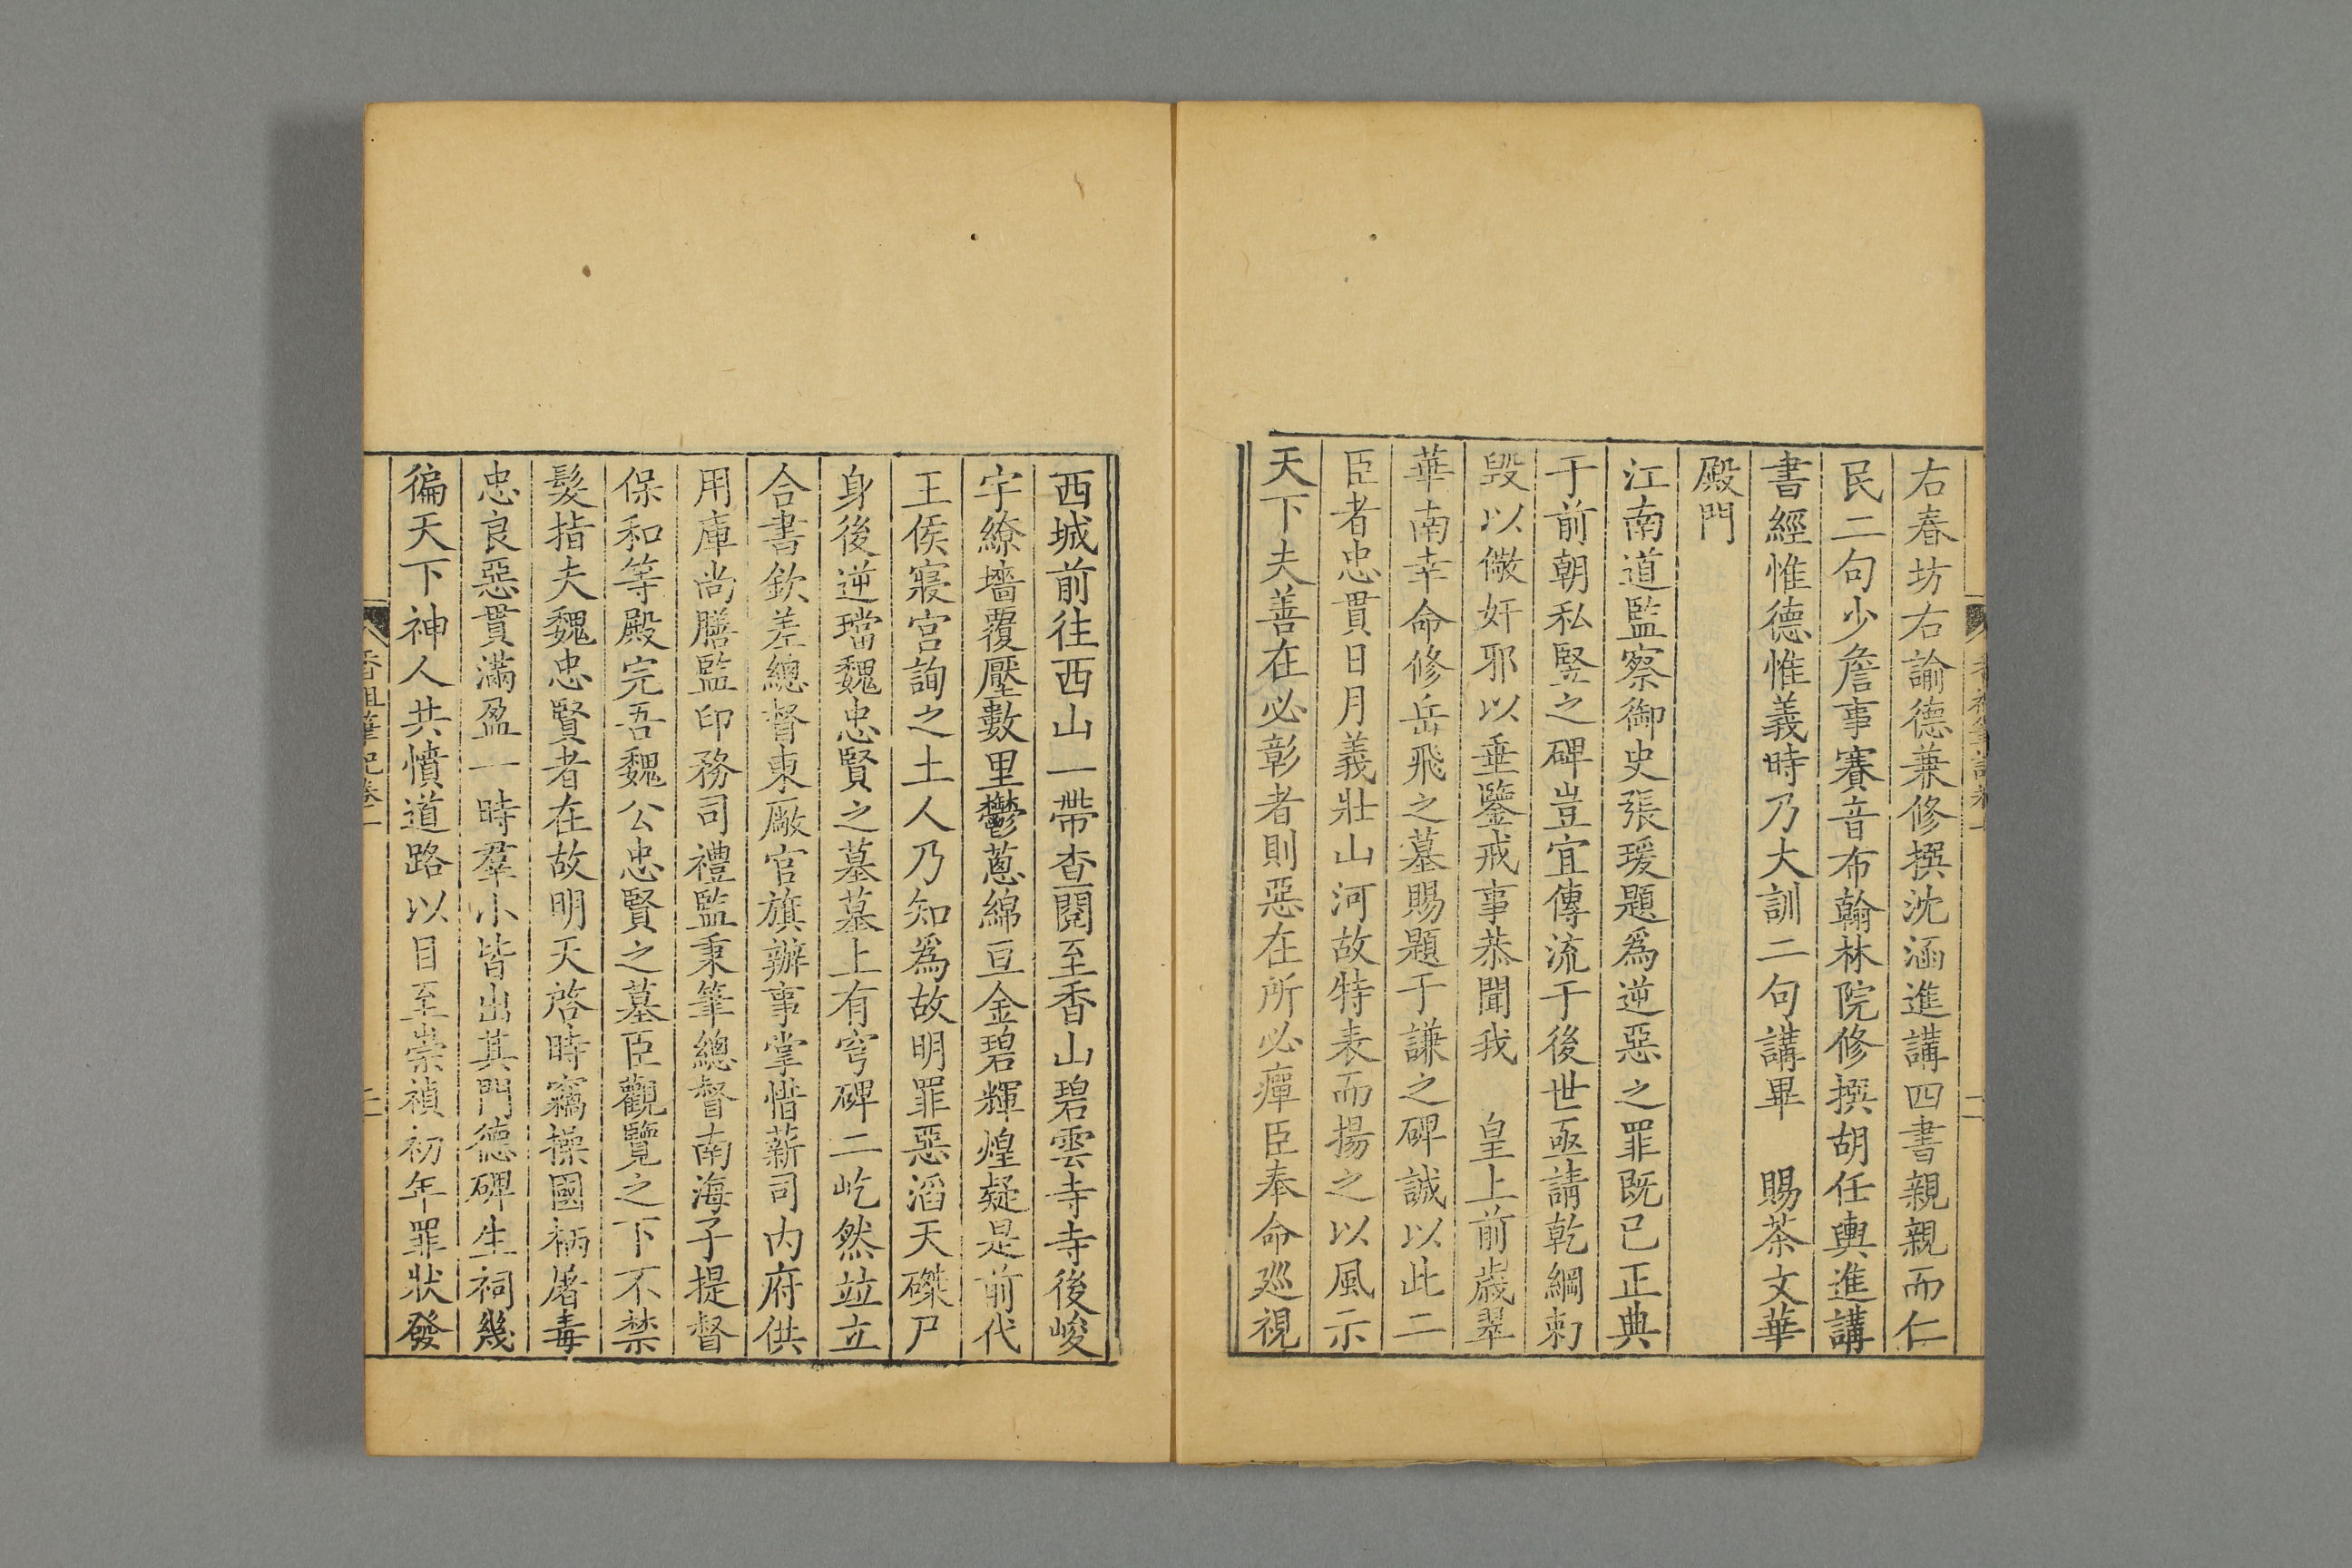 右春坊右諭德兼修撰沈涵進講四書親親而仁
民二句少詹事賽音布翰林院修撰胡任輿進講
書經惟德惟義時乃大訓二句講畢　賜茶文華
殿門
江南道監察御史張瑗題爲逆惡之罪既已正典
于前朝私竪之碑豈宜傳流于後世亟請乾綱剌
毀以儆奸邪以垂鑒戒事恭聞我　皇上前歲翠
華南幸命修岳飛之墓賜題于謙之碑誠以此二
臣者忠貫日月義壯山河故特表而揚之以風示
天下夫善在必彰者則惡在所必癉臣奉命廵視
西城前往西山一帶查閱至香山碧雲寺寺後峻
宇繚墻覆壓數里鬱蔥綿亘金碧輝煌疑是前代
王侯寢宫詢之土人乃知爲故明罪惡滔天磔尸
身後逆璫魏忠賢之墓墓上有穹碑二屹然竝立
合書欽差總督東厰官旗辦事掌惜薪司内府供
用庫尚膳監印務司禮監秉筆總督南海子提督
保和等殿完吾魏公忠賢之墓臣觀覽之下不禁
髮指夫魏忠賢者在故明天啓時竊操國柄屠毒
忠良惡貫滿盈一時羣小皆出其門德碑生祠幾
徧天下神人共憤道路以目至崇禎初年罪狀發
香祖筆記卷